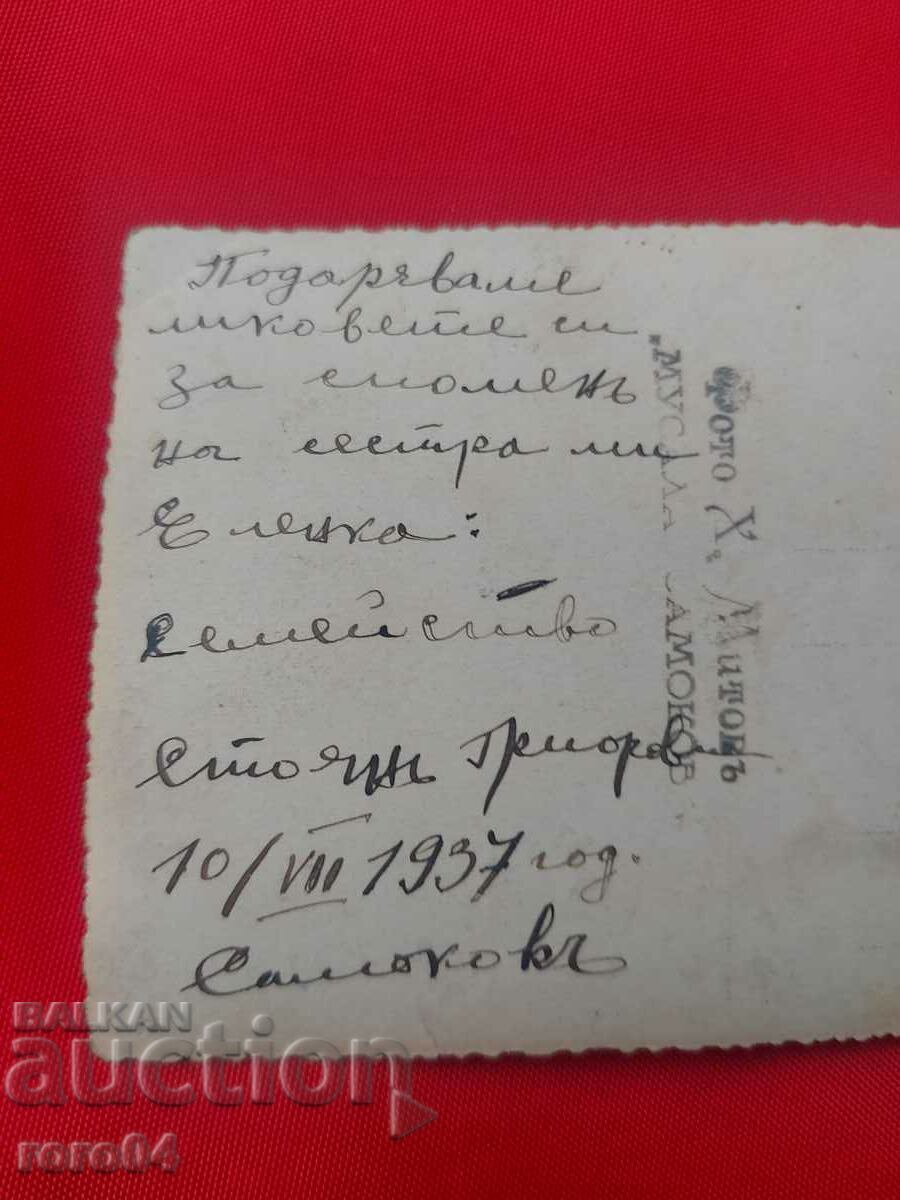 Подаряваме
ликовете си
за споменъ
на сестра ми
Еленка:
Семейство
Стоянъ
10/VIII 1937 год.
Самоковъ
Фото Х. Митовъ
"МУСАЛА" САМОКОВ
BALKAN
auction
roro04